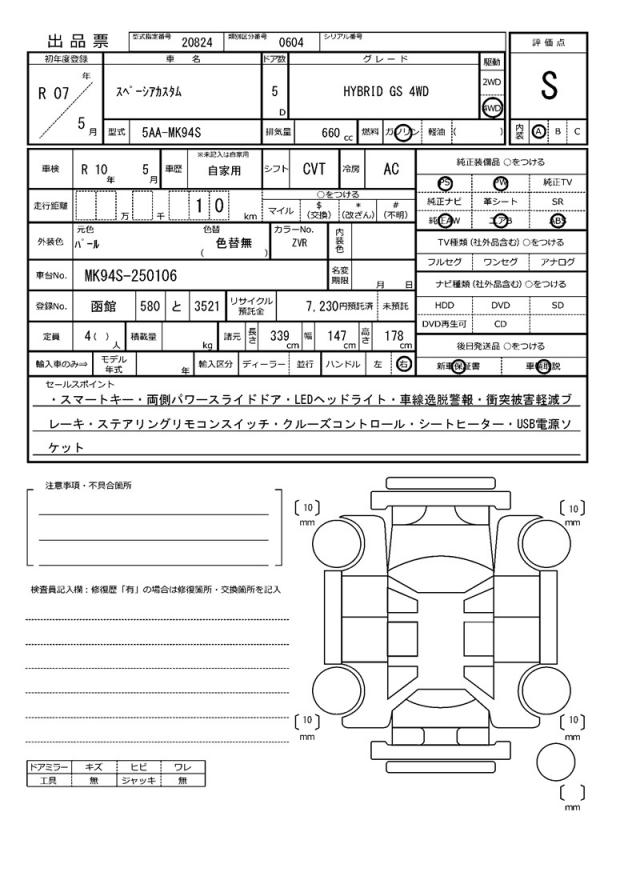 出品票 型式指定番号 20824 類別区分番号 0604 シリアル番号
初年度登録 車名 ドア数 グレード 駆動 評価点
R 07 年 5 月 スペーシアカスタム 5 D HYBRID GS 4WD 2WD 4WD S
型式 5AA-MK94S 排気量 660 cc 燃料 ガソリン 軽油 ( ) 内装 A B C
車検 R 10 年 5 月 車歴 ※未記入は自家用 自家用 シフト CVT 冷房 AC 純正装備品 ○をつける
PS PW 純正TV
走行距離 万 千 1 0 km ○をつける マイル $ (交換) * (改ざん) # (不明) 純正ナビ 革シート SR
純正AW エアB ABS
外装色 元色 パール 色替 色替無 ( ) カラーNo. ZVR 内装色 TV種類 (社外品含む) ○をつける
フルセグ ワンセグ アナログ
車台No. MK94S-250106 名変期限 月 日 ナビ種類 (社外品含む) ○をつける
登録No. 函館 580 と 3521 リサイクル預託金 7,230円預託済 未預託 HDD DVD SD
DVD再生可 CD
定員 4 ( ) 人 積載量 kg 諸元 長さ 339 cm 幅 147 cm 高さ 178 cm 後日発送品 ○をつける
輸入車のみ⇒ モデル年式 年 輸入区分 ディーラー 並行 ハンドル 左 右 新車保証書 車輌取説
セールスポイント
・スマートキー・両側パワースライドドア・LEDヘッドライト・車線逸脱警報・衝突被害軽減ブ
レーキ・ステアリングリモコンスイッチ・クルーズコントロール・シートヒーター・USB電源ソ
ケット
注意事項・不具合箇所
検査員記入欄：修復歴「有」の場合は修復箇所・交換箇所を記入
〔10〕mm 〔10〕mm
〔10〕mm 〔10〕mm
〔 〕mm
ドアミラー キズ ヒビ ワレ
工具 無 ジャッキ 無